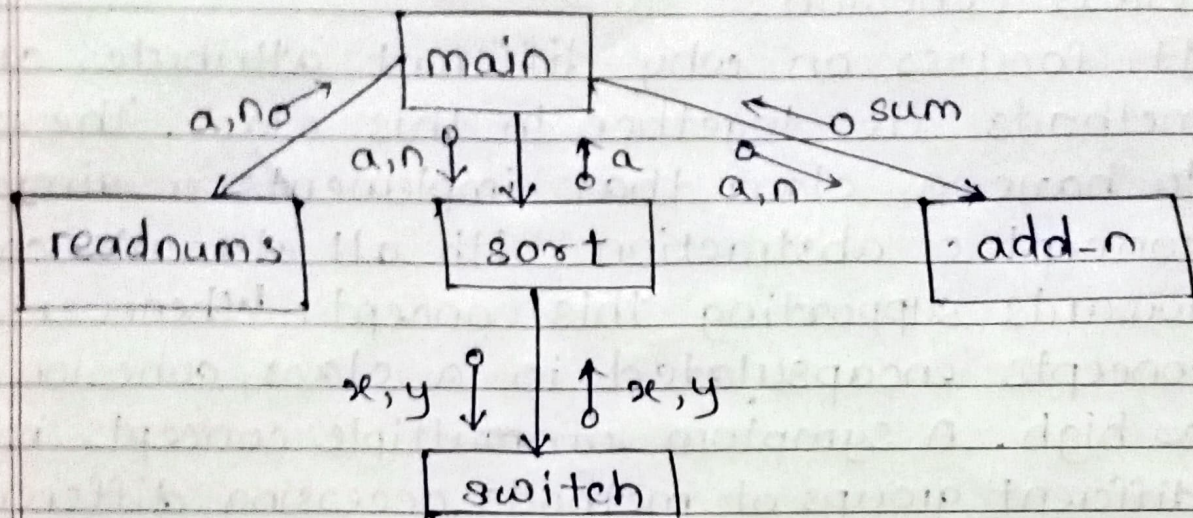 main
a,n
sum
a,n
a
a,n
readnums
sort
add-n
x,y
x,y
switch